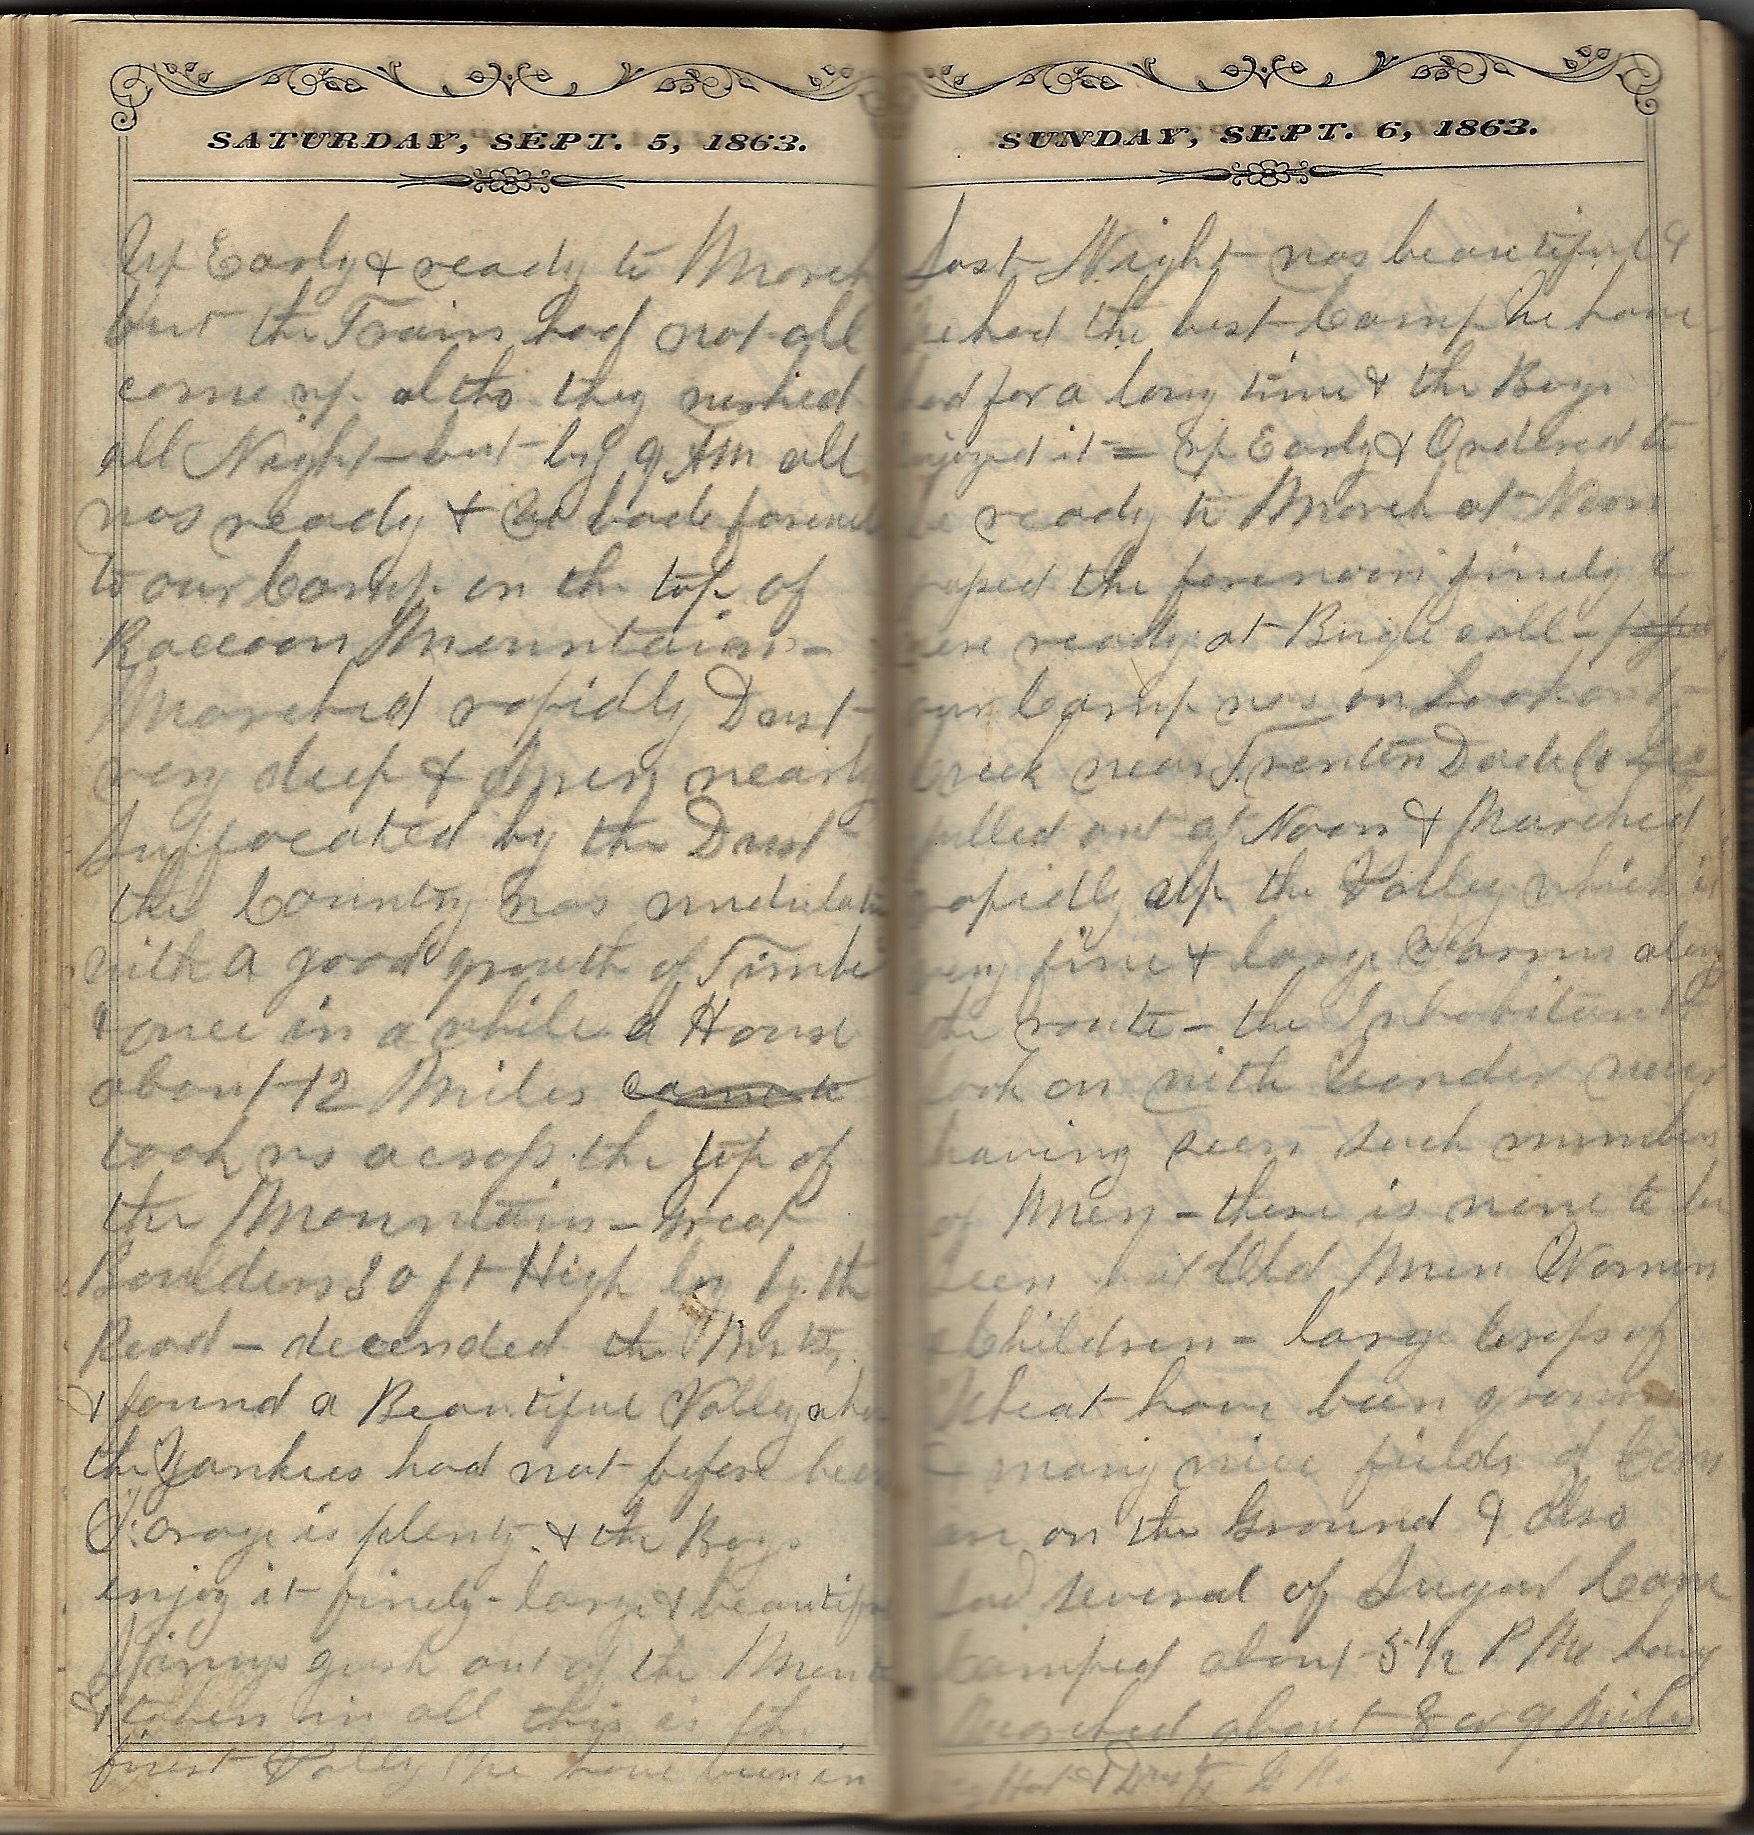 SATURDAY, SEPT. 5, 1863.
Up Early & ready to March
but the Train had not all
come up altho they rushed
all Night - but by 9 AM all
was ready & We bade farewell
to our Camp on the top of
Raccoon Mountain -
Marched rapidly Dust
very deep & Dry nearly
suffocated by the Dust
the Country was undulating
with a good growth of Timber
& once in a while a House
about 12 Miles
took us across the top of
the Mountain - great
Boulders 30 ft High lay by the
Road - decended the Mnts,
& found a Beautiful Valley where
the Yankees had not before been
Forage is plenty & the Boys
enjoy it finely - large & beautiful
Springs gush out of the Mount
& taken in all this is the
finest Valley We have been in
SUNDAY, SEPT. 6, 1863.
Last Night was beautiful &
We had the best Camp We have
had for a long time & the Boys
enjoyed it = Up Early & Ordered to
be ready to March at Noon
the forenoon finely &
were ready at Bugle call -
our Camp was on Lookout
Creek near Trenton Dade Co
pulled out at Noon & Marched
rapidly up the Valley which is
very fine & large Farms along
the route - the Inhabitants
look on with Wonder never
having seen such numbers
of Men - there is none to be
seen but Old Men Women
& Children - large Crops of
Wheat have been grown
& many nice fields of Corn
are on the Ground & also
several of Sugar Cane
Camped about 5 1/2 PM having
Marched about 8 or 9 Miles
Hot & Dusty